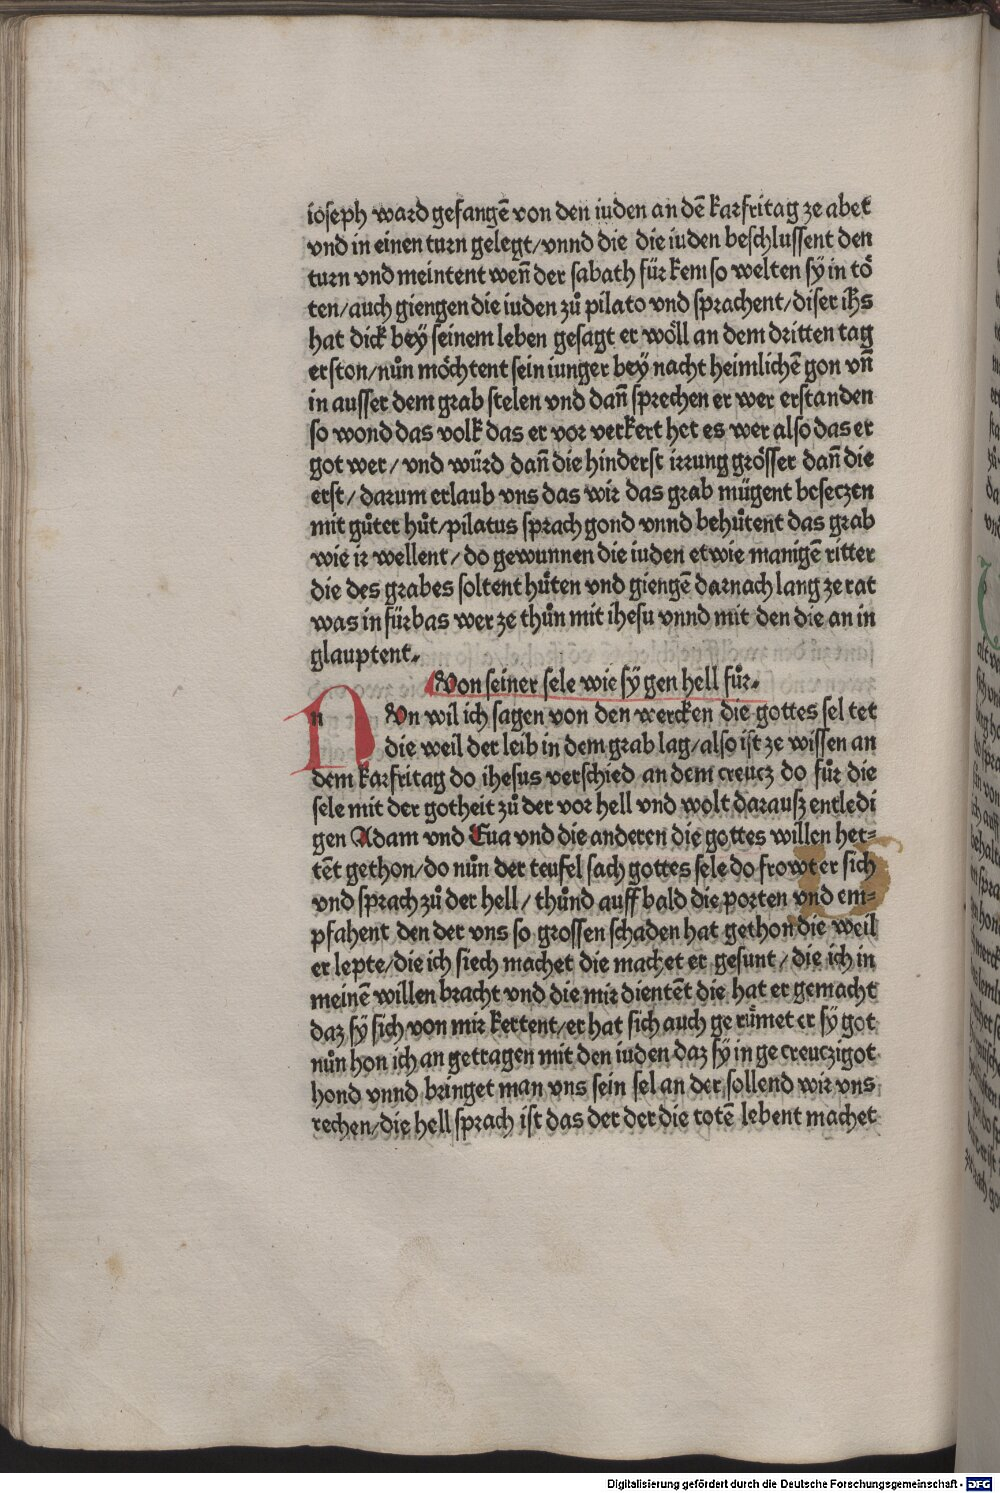 ioseph ward gefangē von den iuden an dē karfritag ze abēt
vnd in einen turn gelegt/vnnd die die iuden beschlussent den
turn vnd meintent wen̄ der sabath für kem so welten sÿ in toͤ
ten/auch giengen die iuden zů pilato vnd sprachent/diser ihs
hat dick beÿ seinem leben gesagt er woͤll an dem dritten tag
erston/nůn moͤchtent sein iunger beÿ nacht heimlichē gon vn̄
in ausser dem grab stelen vnd dan̄ sprechen er wer erstanden
so wond das volk das er vor verkert het es wer also das er
got wer/vnd würd dan̄ die hinderst irrung groͤsser dan̄ die
erst/darum erlaub vns das wir das grab mügent beseczen
mit gůter hůt/pilatus sprach gond vnnd behuͤtent das grab
wie ir wellent/do gewunnen die iuden etwie manigē ritter
die des grabes soltent huͤten vnd giengē darnach lang ze rat
was in fürbas wer ze thůn mit ihesu vnnd mit den die an in
glauptent.
Von seiner sele wie sÿ gen hell fůr.
n Vn wil ich sagen von den wercken die gottes sel tet
die weil der leib in dem grab lag/also ist ze wissen an
dem karfritag do ihesus verschied an dem creucz do fůr die
sele mit der gotheit zů der vor hell vnd wolt darausz entledi
gen Adam vnd Eua vnd die anderen die gottes willen het=
tēt gethon/do nůn der teufel sach gottes sele do frowt er sich
vnd sprach zů der hell/thůnd auff bald die porten vnd em=
pfahent den der vns so grossen schaden hat gethon die weil
er lepte/die ich siech machet die machet er gesunt/die ich in
meinē willen bracht vnd die mir dientēt die hat er gemacht
daz sÿ sich von mir kertent/er hat sich auch ge ruͤmet er sÿ got
nůn hon ich an getragen mit den iuden daz sÿ in ge creuczigot
hond vnnd bringet man vns sein sel an der sollend wir vns
rechen/die hell sprach ist das der der die totē lebent machet
Digitalisierung gefördert durch die Deutsche Forschungsgemeinschaft - DFG